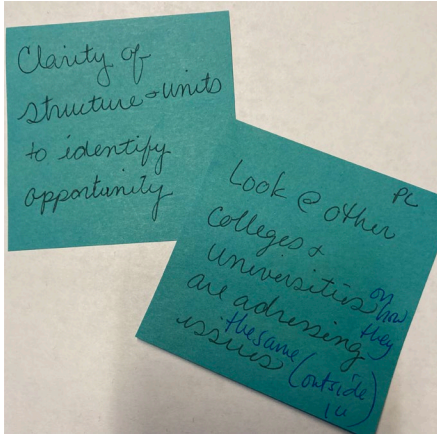 Clarity of
structure & units
to identify
opportunity
PC
Look @ other
Colleges &
Universities on how
are adressing they
issues the same (outside
IU)